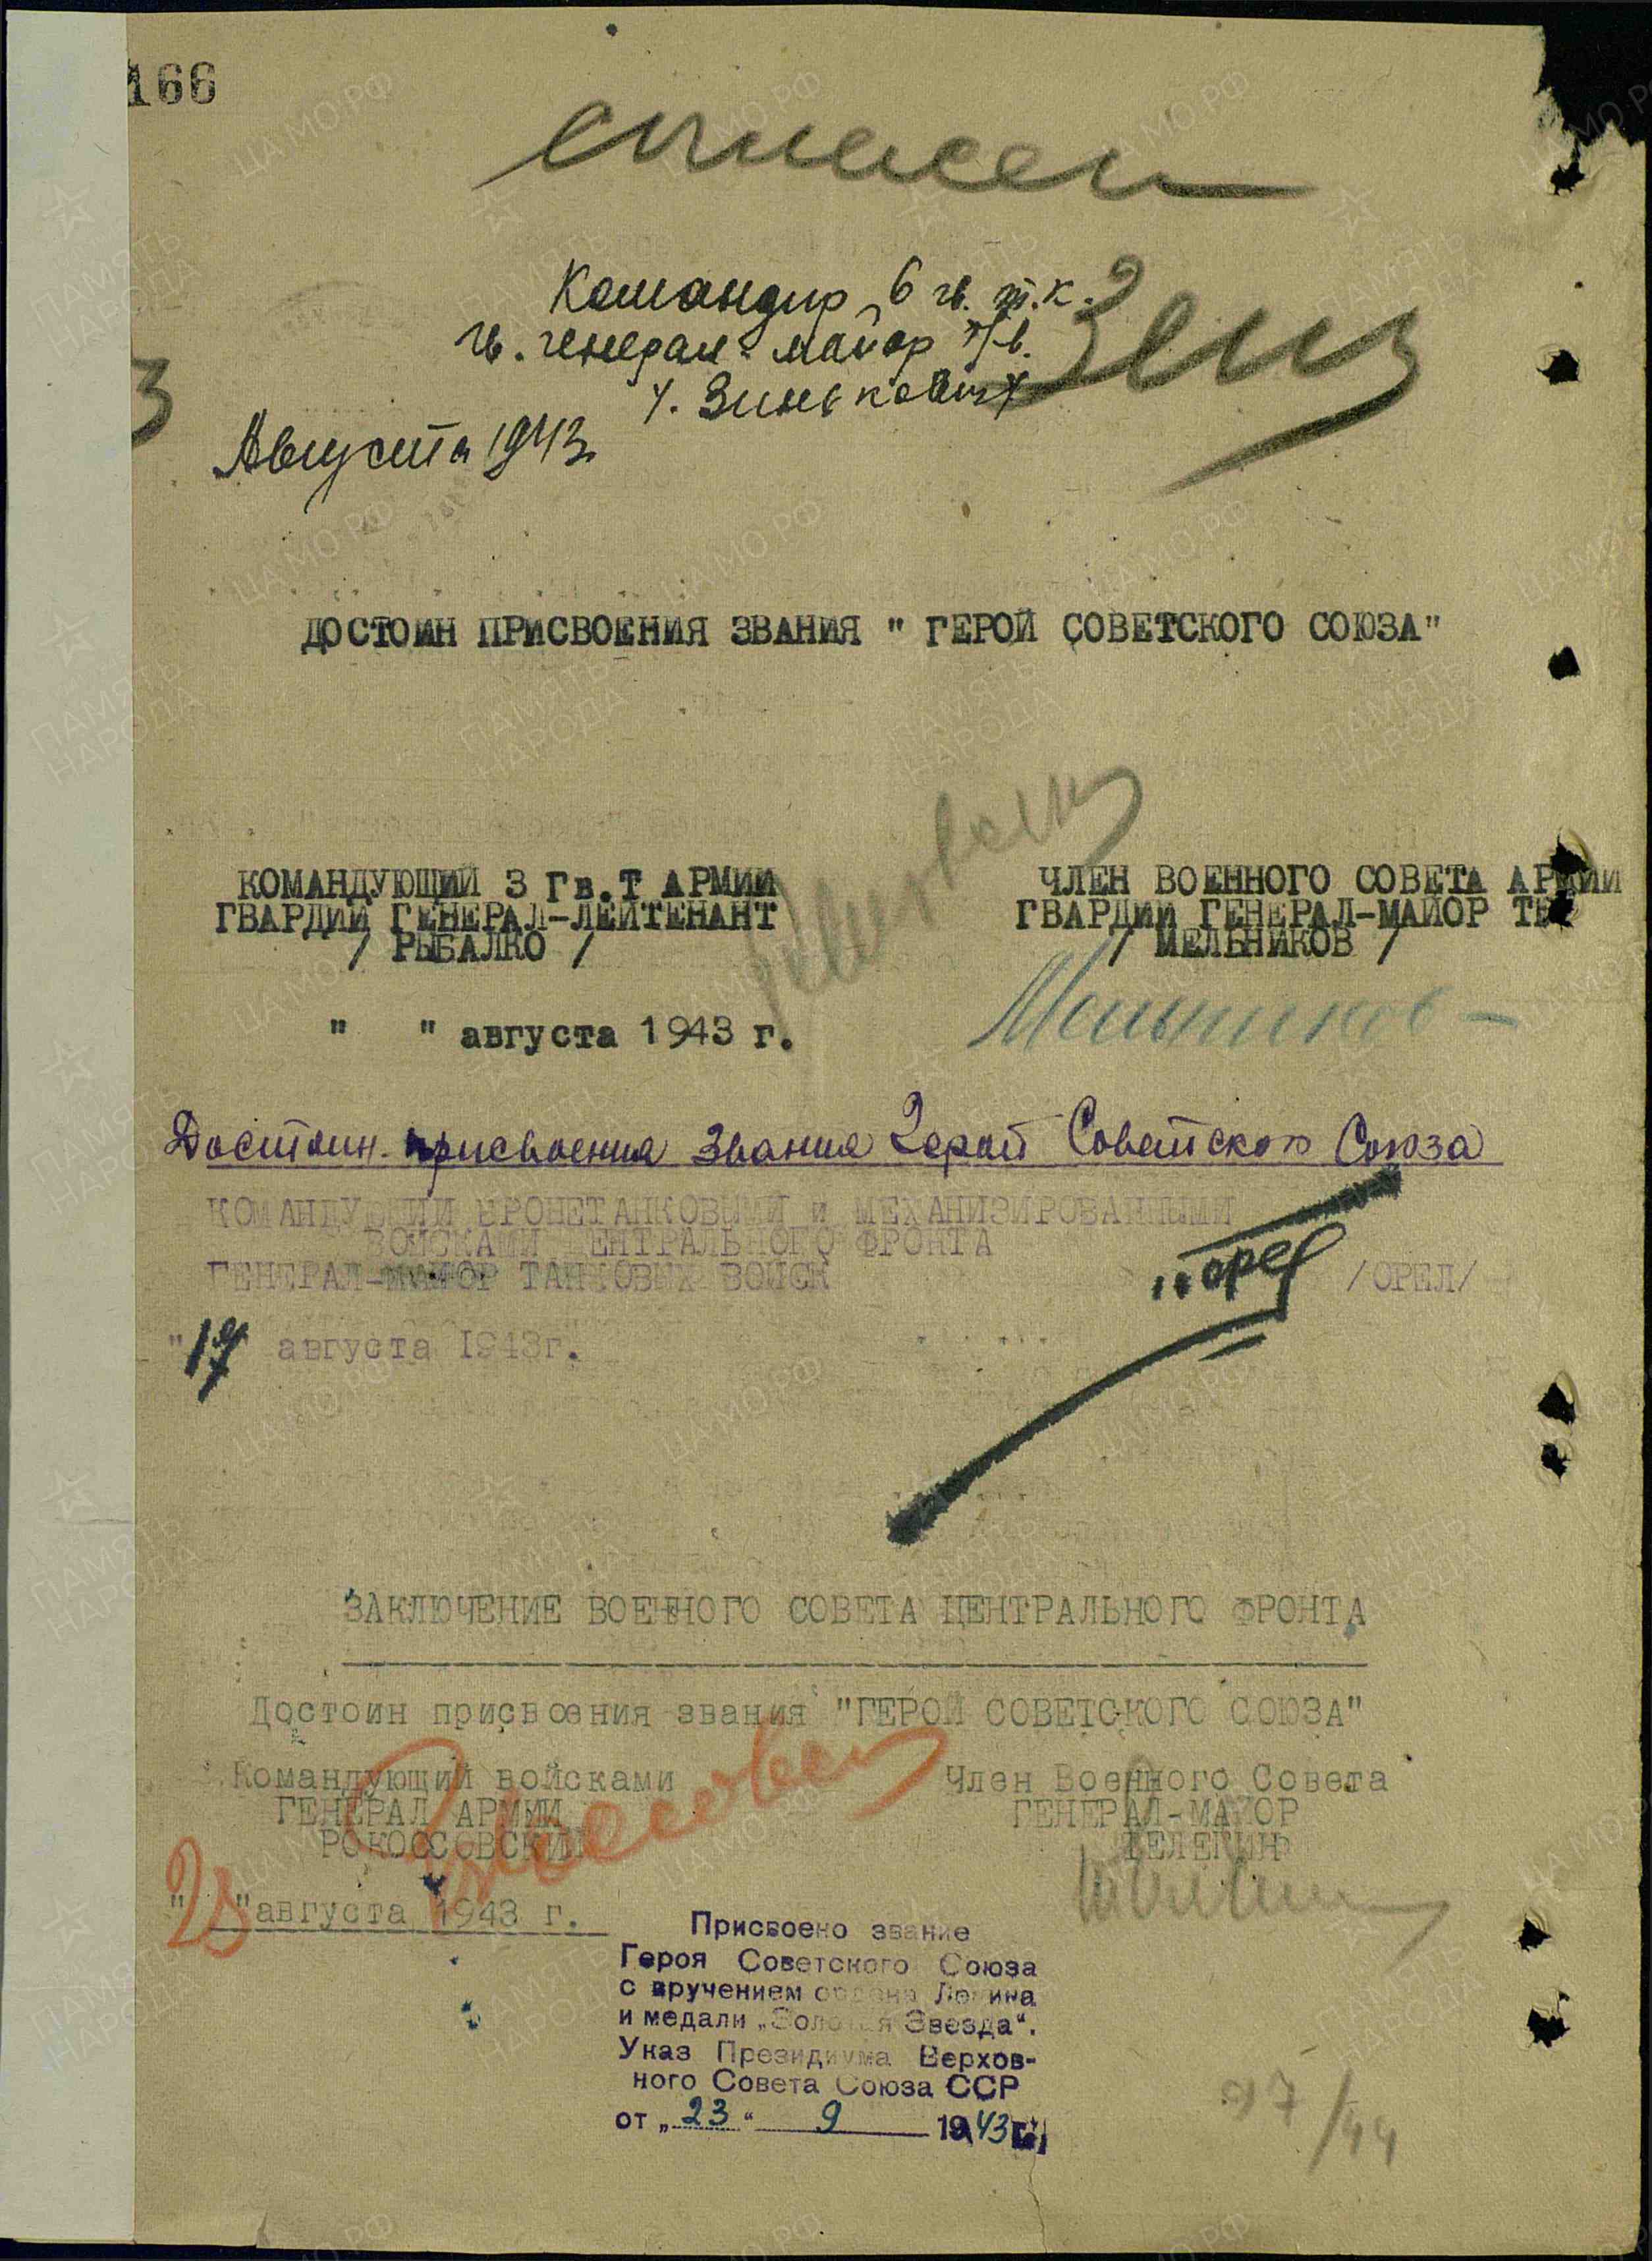 166
Командир 6 гв. т.к.
гв. генерал-майор т/в.
Зинькович
Августа 1943
ДОСТОИН ПРИСВОЕНИЯ ЗВАНИЯ " ГЕРОЙ СОВЕТСКОГО СОЮЗА"
КОМАНДУЮЩИЙ 3 Гв.Т АРМИИ
ГВАРДИИ ГЕНЕРАЛ-ЛЕЙТЕНАНТ
/ РЫБАЛКО /
" " августа 1943 г.
ЧЛЕН ВОЕННОГО СОВЕТА АРМИИ
ГВАРДИИ ГЕНЕРАЛ-МАЙОР ТВ
/ МЕЛЬНИКОВ /
Мельников
Достоин присвоения звания Герой Советского Союза
КОМАНДУЮЩИЙ БРОНЕТАНКОВЫМИ и МЕХАНИЗИРОВАННЫМИ
ВОЙСКАМИ ЦЕНТРАЛЬНОГО ФРОНТА
ГЕНЕРАЛ-МАЙОР ТАНКОВЫХ ВОЙСК /ОРЕЛ/
"17 августа 1943г.
ЗАКЛЮЧЕНИЕ ВОЕННОГО СОВЕТА ЦЕНТРАЛЬНОГО ФРОНТА
Достоин присвоения звания "ГЕРОЙ СОВЕТСКОГО СОЮЗА"
Командующий войсками
ГЕНЕРАЛ АРМИИ
РОКОССОВСКИЙ
"25"августа 1943 г.
Член Военного Совета
ГЕНЕРАЛ-МАЙОР
ТЕЛЕГИН
Присвоено звание
Героя Советского Союза
с вручением ордена Ленина
и медали „Золотая Звезда".
Указ Президиума Верхов-
ного Совета Союза ССР
от „23" 9 1943 г.
97/44